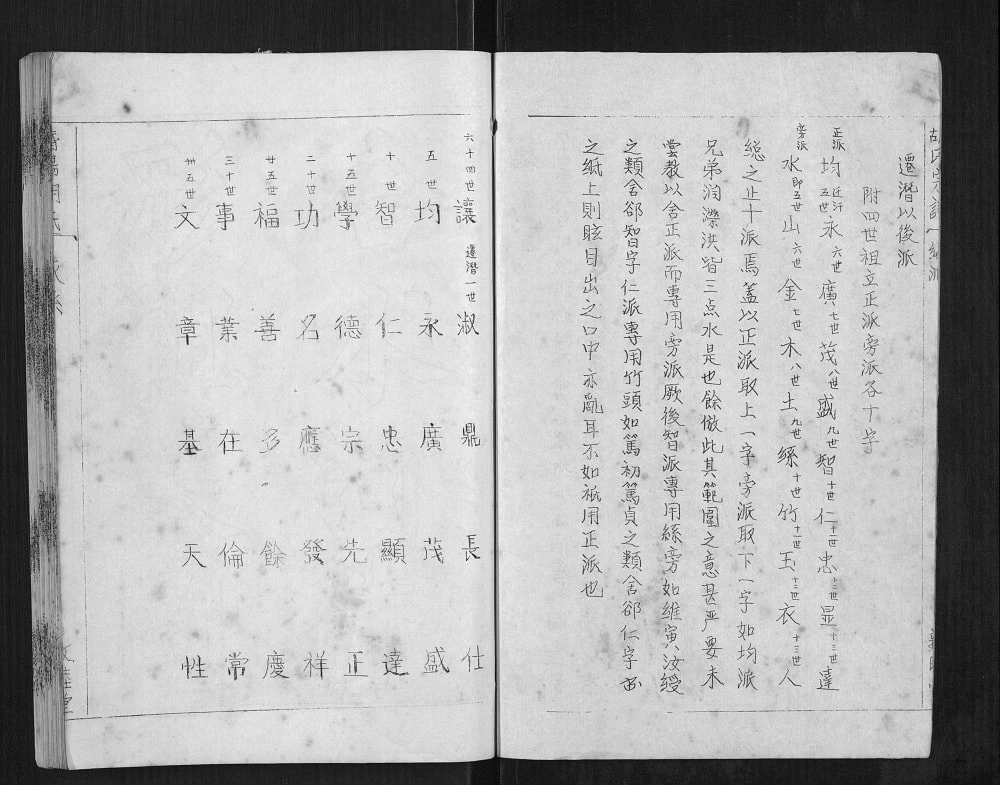 遷潛以後派
附四世祖立正派旁派各十字
正派 均 五世 永 六世 廣 七世 茂 八世 盛 九世 智 十世 仁 十一世 忠 十二世 显 十三世 達
旁派 水 即五世 山 六世 金 七世 木 八世 土 九世 絲 十世 竹 十一世 玉 十二世 衣 十三世 人
總之止十派焉蓋以正派取上一字旁派取下一字如均派
兄弟润濼洪皆三点水是也餘倣此其範圍之意甚严要未
嘗教以舍正派而專用旁派厥後智派專用絲旁如維寅汝綬
之類舍郤智字仁派專用竹頭如篤初篤貞之類舍郤仁字书
之纸上則眩目出之口中亦亂耳不如祗用正派也
六十四世 讓 遷潛一世 淑 鼎 長 仕
五世 均 永 廣 茂 盛
十世 智 仁 忠 顯 達
十五世 學 德 宗 先 正
二十世 功 名 應 發 祥
廿五世 福 善 多 餘 慶
三十世 事 業 在 倫 常
卅五世 文 章 基 天 性